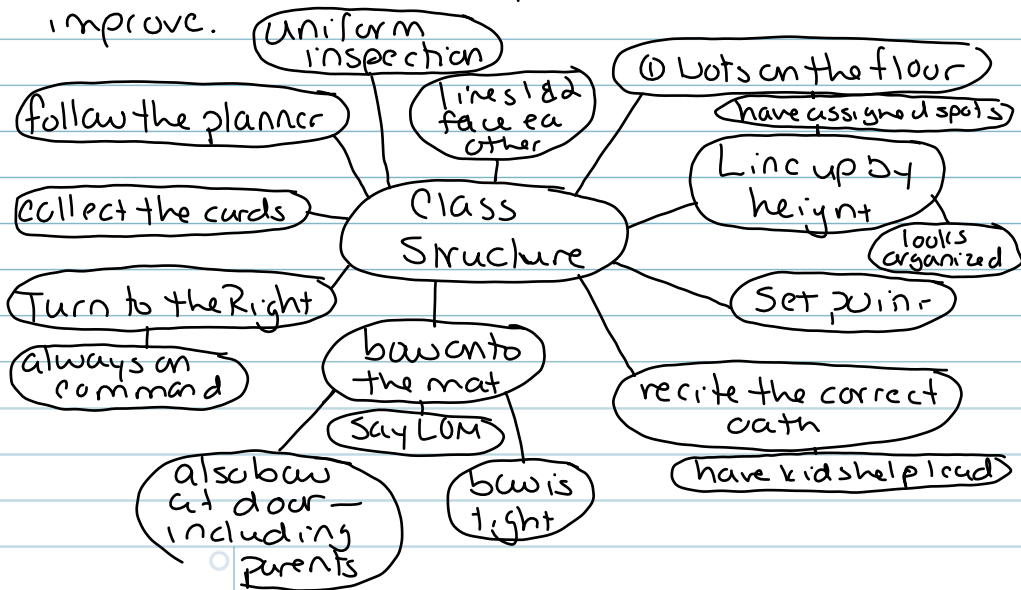 improve.
uniform
inspection
① Dots on the floor
have assigned spots
lines 1&2
face ea
other
follow the planner
Line up by
height
looks
organized
collect the cards
Class
Structure
Turn to the Right
always on
command
Set point
bow onto
the mat
Say LOM
recite the correct
oath
have kids help lead
also bow
at door —
including
parents
bow is
tight